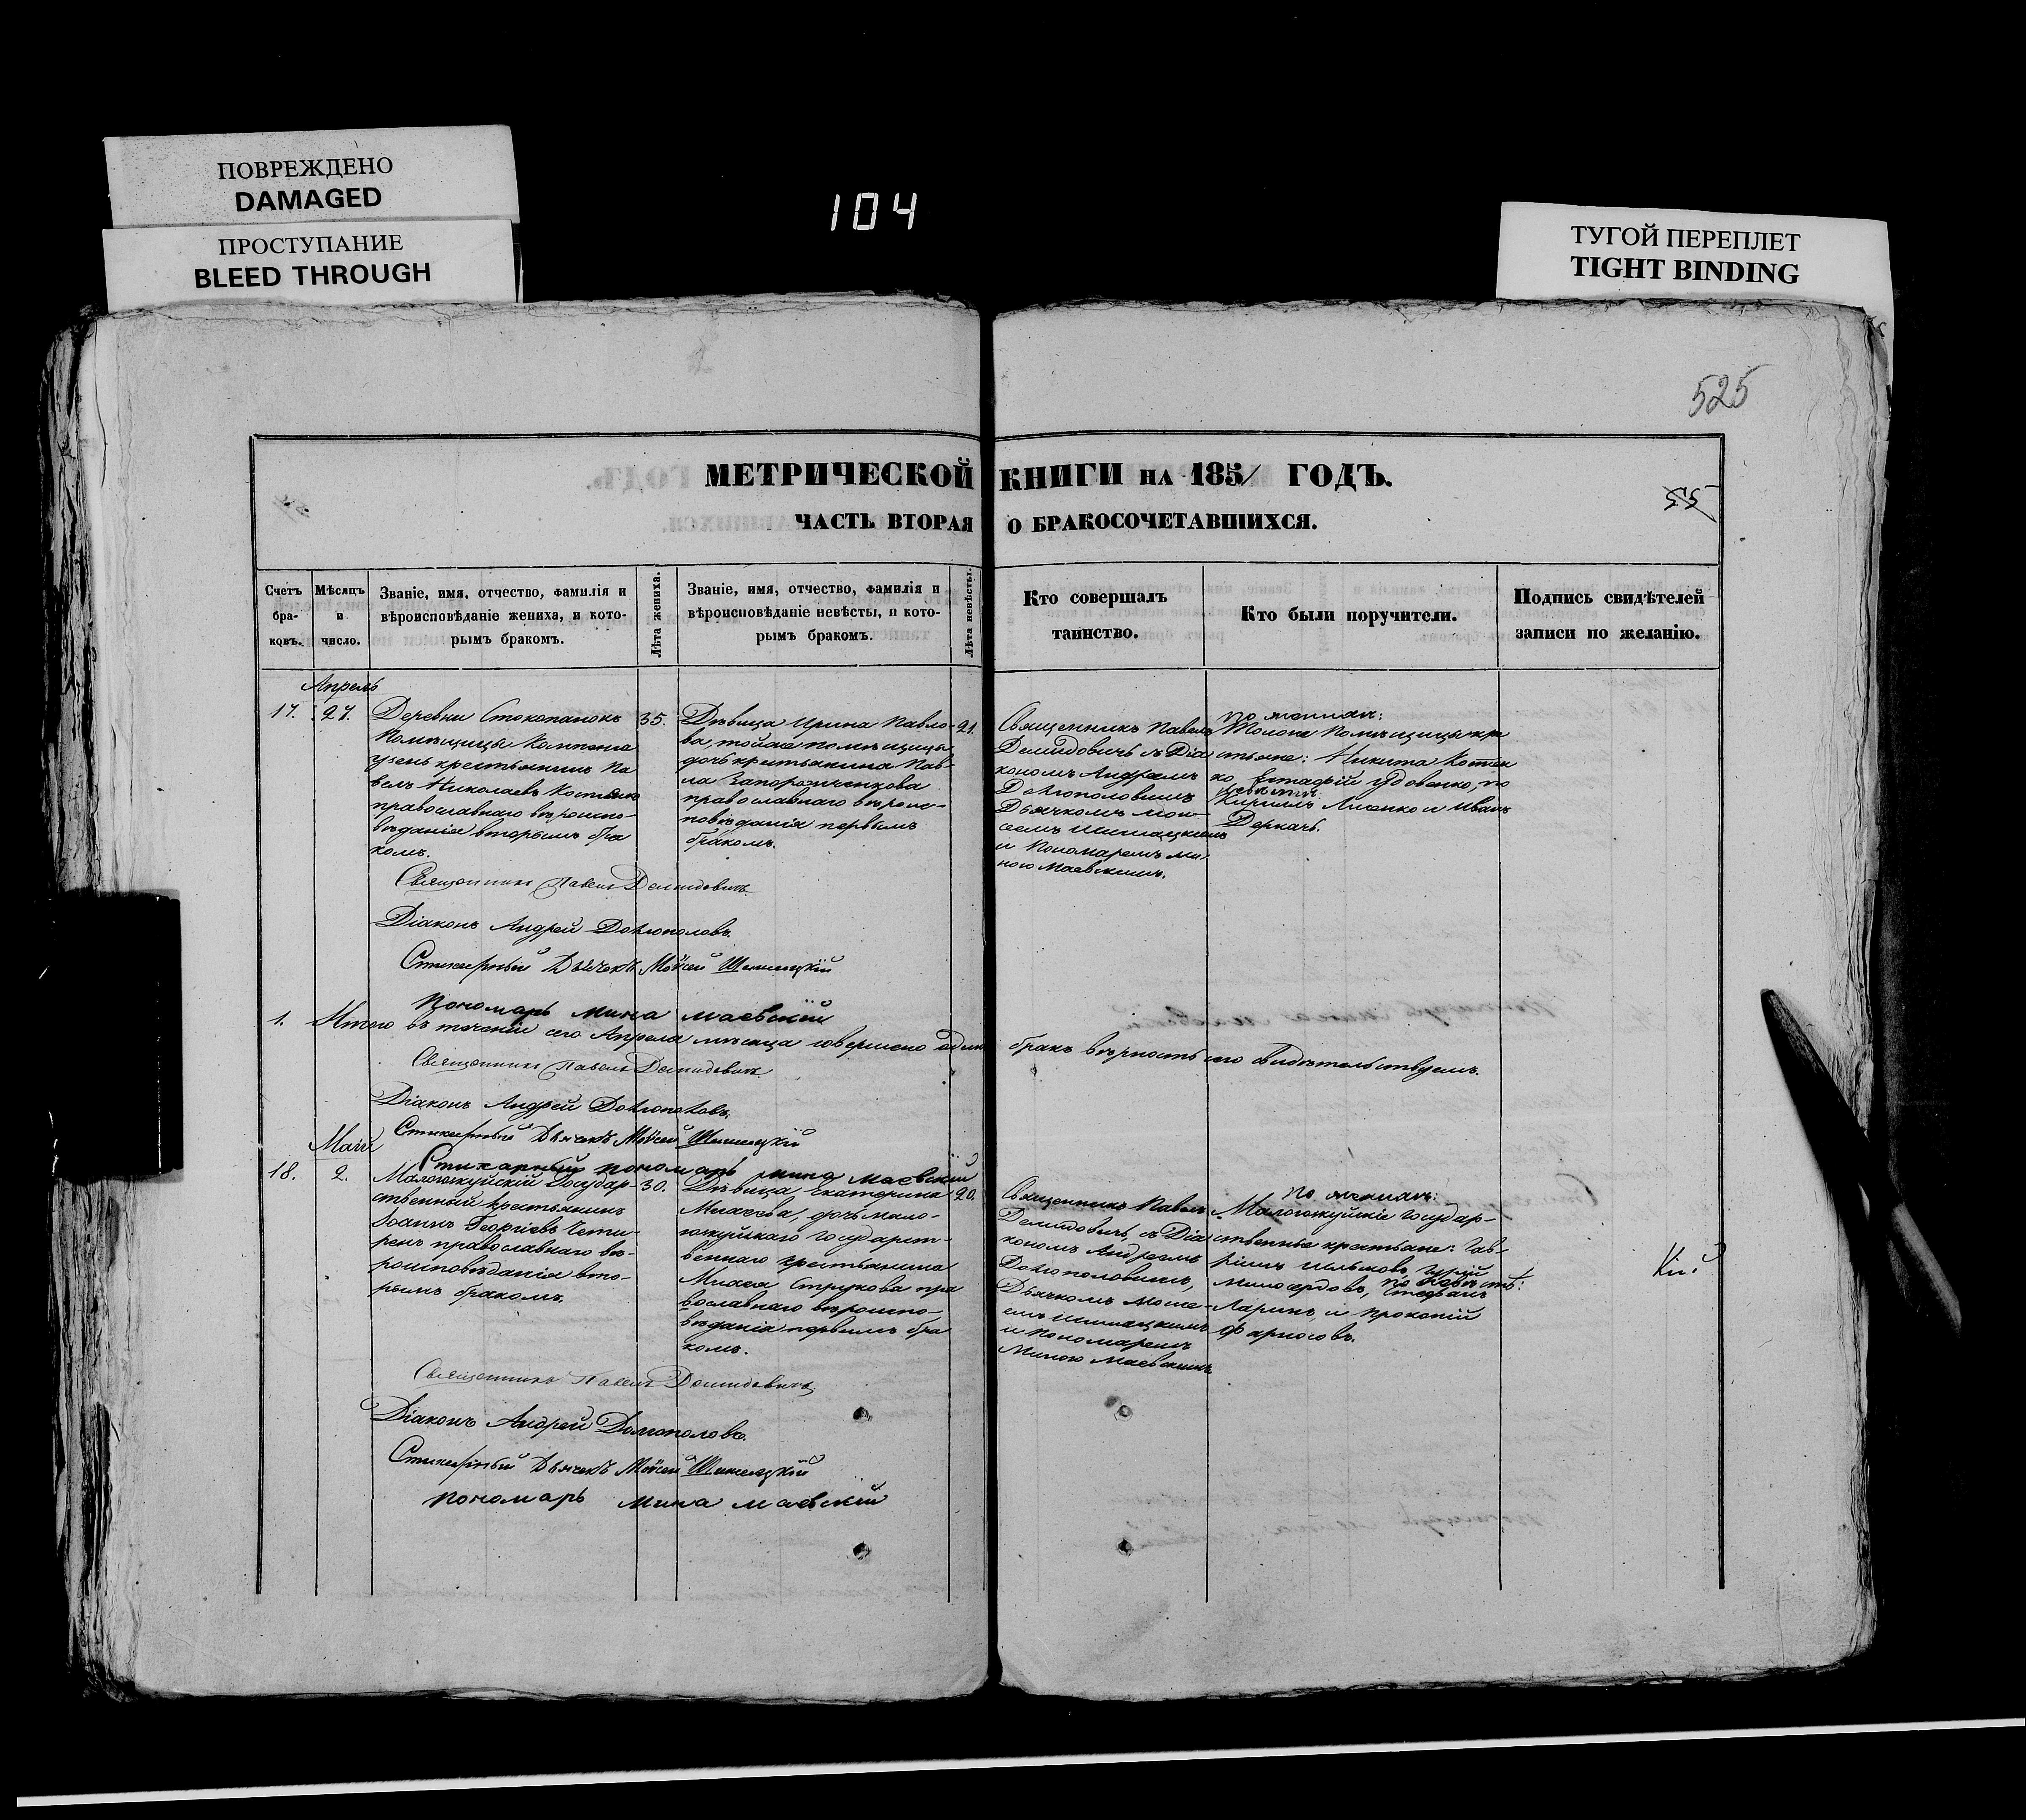 ПОВРЕЖДЕНО
DAMAGED
ПРОСТУПАНИЕ
BLEED THROUGH
104
ТУГОЙ ПЕРЕПЛЕТ
TIGHT BINDING
525
МЕТРИЧЕСКОЙ КНИГИ НА 1851 ГОДЪ.
55
ЧАСТЬ ВТОРАЯ О БРАКОСОЧЕТАВШИХСЯ.
Счетъ
бра-
ковъ.
Мѣсяцъ
и
число.
Званіе, имя, отчество, фамилія и
вѣроисповѣданіе жениха, и кото-
рымъ бракомъ.
Лѣта жениха.
Званіе, имя, отчество, фамилія и
вѣроисповѣданіе невѣсты, и кото-
рымъ бракомъ.
Лѣта невѣсты.
Кто совершалъ
таинство.
Кто были поручители.
Подпись свидѣтелей
записи по желанію.
Апрель
17.
27.
Деревни
Помѣщицы
крестьянинъ Па
велъ Николаевъ
православнаго вѣроиспо-
вѣданія вторымъ бра
комъ.
35.
Дѣвица Ирина Павло-
ва, тойже помѣщицы
дочь крестьянина Пав-
ла Запорожченкова
православнаго вѣроис-
повѣданія первымъ
бракомъ.
21.
Священникъ Павелъ
Демидовичъ съ Діа
кономъ Андреемъ
Долгополовымъ
Дьячкомъ Мои-
сеемъ Шишацкимъ
и Пономаремъ Ми-
ною Маевскимъ.
по женихѣ:
Помѣщицы кре
стьяне: Никита
Удовенко, по
невѣстѣ:
Кириллъ Лисенко и Иванъ
Деркачь.
Священникъ Павелъ Демидовичъ
Діаконъ Андрей Долгополовъ.
Стихарный Дьячекъ Мойсей Шишацкій
Пономарь Мина Маевскій
1. Итого въ теченіи сего Апреля мѣсяца совершено одинъ бракъ вѣрность сего свидѣтельствуемъ.
Священникъ Павелъ Демидовичъ
Діаконъ Андрей Долгополовъ.
Стихарный Дьячекъ Мойсей Шишацкій
Стихарный пономарь Мина Маевскій
Маій
18.
2.
Государ-
ственный крестьянинъ
Іоаннъ Георгіевъ Чети-
ренъ православнаго вѣ-
роисповѣданія вто-
рымъ бракомъ.
30.
Дѣвица Екатерина
дочь мало-
Государст-
веннаго крестьянина
Струкова пра
вославнаго вѣроиспо-
вѣданія первымъ бра
комъ.
20.
Священникъ Павелъ
Демидовичъ, съ Діа
кономъ Андреемъ
Долгополовымъ,
Дьячкомъ Моисе-
емъ Шишацкимъ
и Пономаремъ
Миною Маевскимъ
по женихѣ:
Государ-
ственные крестьяне: Гав-
по невѣстѣ:
Стефанъ
Ларинъ, и Прокопій
Священникъ Павелъ Демидовичъ
Діаконъ Андрей Долгополовъ.
Стихарный Дьячекъ Мойсей Шишацкій
пономарь Мина Маевскій